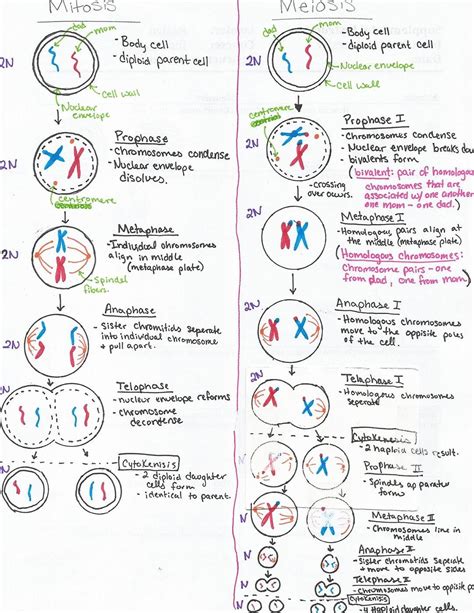 Mitosis
dad
mom
- Body cell
- diploid parent cell
2N
Cell wall
Nuclear
envelope
Prophase
- Chromosomes condense
- Nuclear envelope
disolves.
2N
centromere
Metaphase
- Individual chromosomes
align in middle
(metaphase plate)
2N
Spindel
fibers.
Anaphase
- Sister chromitids seperate
into individual chromosome
+ pull apart.
2N
Telophase
- nuclear envelope reforms
- chromosome
decondense
Cytokenisis
- 2 diploid daughter
cells form
- identical to parent.
N
Meiosis
dad
mom
- Body cell
- diploid parent cell
2N
Nuclear envelope
Cell wall
centromere
Prophase I
- Chromosomes condense
- Nuclear envelope breaks do
- bivalents form
(bivalent: pair of homologous
chromosomes that are
associated w/ one another
one mom - one dad.)
2N
- crossing
over occurs.
Metaphase I
- Homologous pairs align at
the middle (metaphase plate)
(Homologous chromosomes:
Chromosome pairs - one
from dad, one from mom)
2N
Anaphase I
- Homologous chromosomes
move to the opposite poles
of the cell.
2N
Telaphase I
- Homologous chromosomes
seperate
2N
Cytokenisis
- 2 haploid cells result.
Prophase II
- Spindles apparatus
forms
N
Metaphase II
- Chromosomes line in
middle
N
Anaphase II
- Sister chromitids seperate
+ move to opposite sides
Telephase II
Cytokenisis
- 4 Haploid daughter cells
N